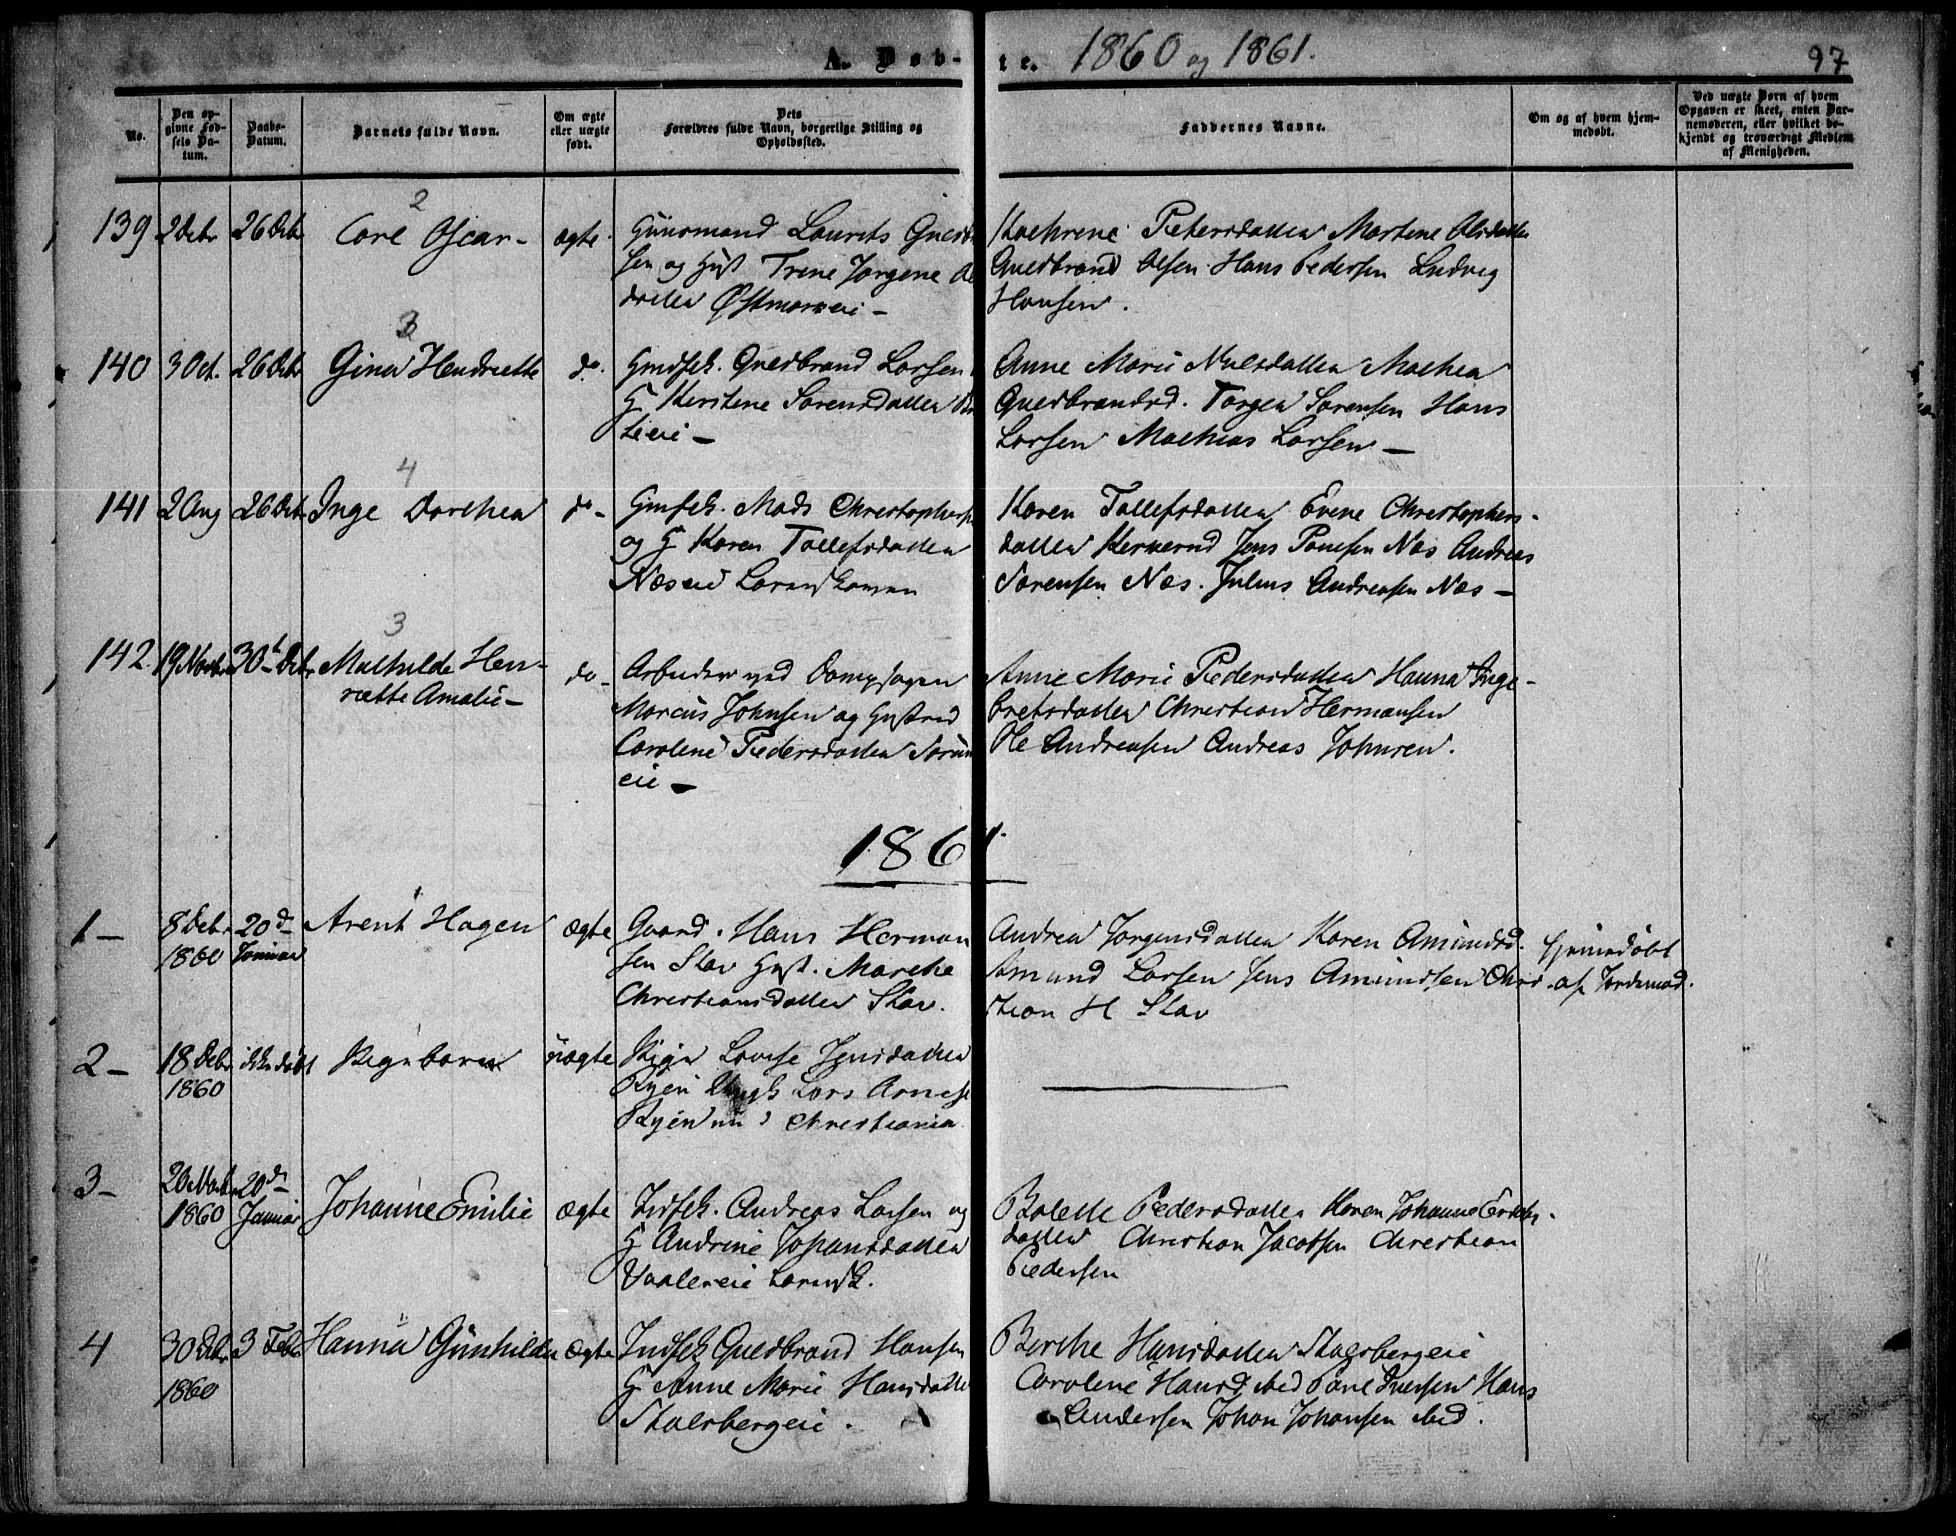 A. Døb- te. 1860 og 1861. 97
No.
Den opgivne Fødsels Datum.
Daabs-Datum.
Barnets fulde Navn.
Om ægte eller uægte født.
Dets Forældres fulde Navn, borgerlige Stilling og Opholdssted.
Faddernes Navne.
Om og af hvem hjemmedøbt.
Ved uægte Børn af hvem Opgaven er skeet, enten Barnemoderen, eller hvilket bekjendt og troværdigt Medlem af Menigheden.
2
139 2 Debr 26 Debr Carl Oscar - ægte.
Huusmand Laurits
sen og Hust Trine Jørgine
datter Østmarkeie -
Kathrine Pedersdatter Martine Olsdatter
Guldbrand Olsen Hans Pedersen Ludvig
Hansen.
3
140 3 Oct. 26 Debr Gina Hendriette do.
Guldbrand Larsen
H Kirstine Sørensdatter
eie -
Anne Marie Nilsdatter Mathea
Guldbrandsd. Torger Sørensen Hans
Larsen Mathias Larsen -
4
141 2 Aug 26 Debr. Inge Dorthea do -
Mads Christophers
og H Karen Tollefsdatter
Næseie Lørenskoven
Karen Tollefsdatter Evine Christophers-
datter Jens Poulsen Næs Andreas
Sørensen Næs. Julius Andreasen Næs -
3
142. 19 Novbr 30te Debr Mathilde Hen-
riette Amalie - do -
Arbeider ved Dampsagen
Marcus Johnsen og Hustrue
Caroline Pedersdatter
eie -
Anne Marie Pedersdatter Hanna Inge-
bretsdatter Christian Hermansen
Ole Andreasen Andreas Johnsen.
1861.
1
1 - 8 Debr 1860 20de Januar Arent Hagen ægte
Gaard. Hans Herman
sen Slav Hust. Marthe
Christiansdatter Slav.
Andrea Jørgensdatter Karen Amundsd.
Amund Larsen Jens Amundsen Chris
tian H Slav
hjemmedøbt
af Jordemod.
2 - 18 Debr 1860 ikke døbt Pigebarn uægte
Pige Lovise Jensdatter
Ryen Ungk Lars Arnese
Ryen nu i Christiania
3 - 20 Novbr 1860 20de Januar Johanne Emilie ægte
Indsk. Andreas Larsen og
H Andrine Johansdatter
Vaalereie Lørensk.
Bolette Pedersdatter Karen Johanne
datter Christian Jacobsen Christian
Pedersen
4 30 Debr 1860 3 Febr Hanna Gunhilda ægte
Indsk Guldbrand Hansen
H Anne Marie Hansdatter
Stalsbergeie.
Berthe Hansdatter Stalsbergeie
Caroline Hansd ibid Iversen Hans
Andersen Johan Johansen ibid.